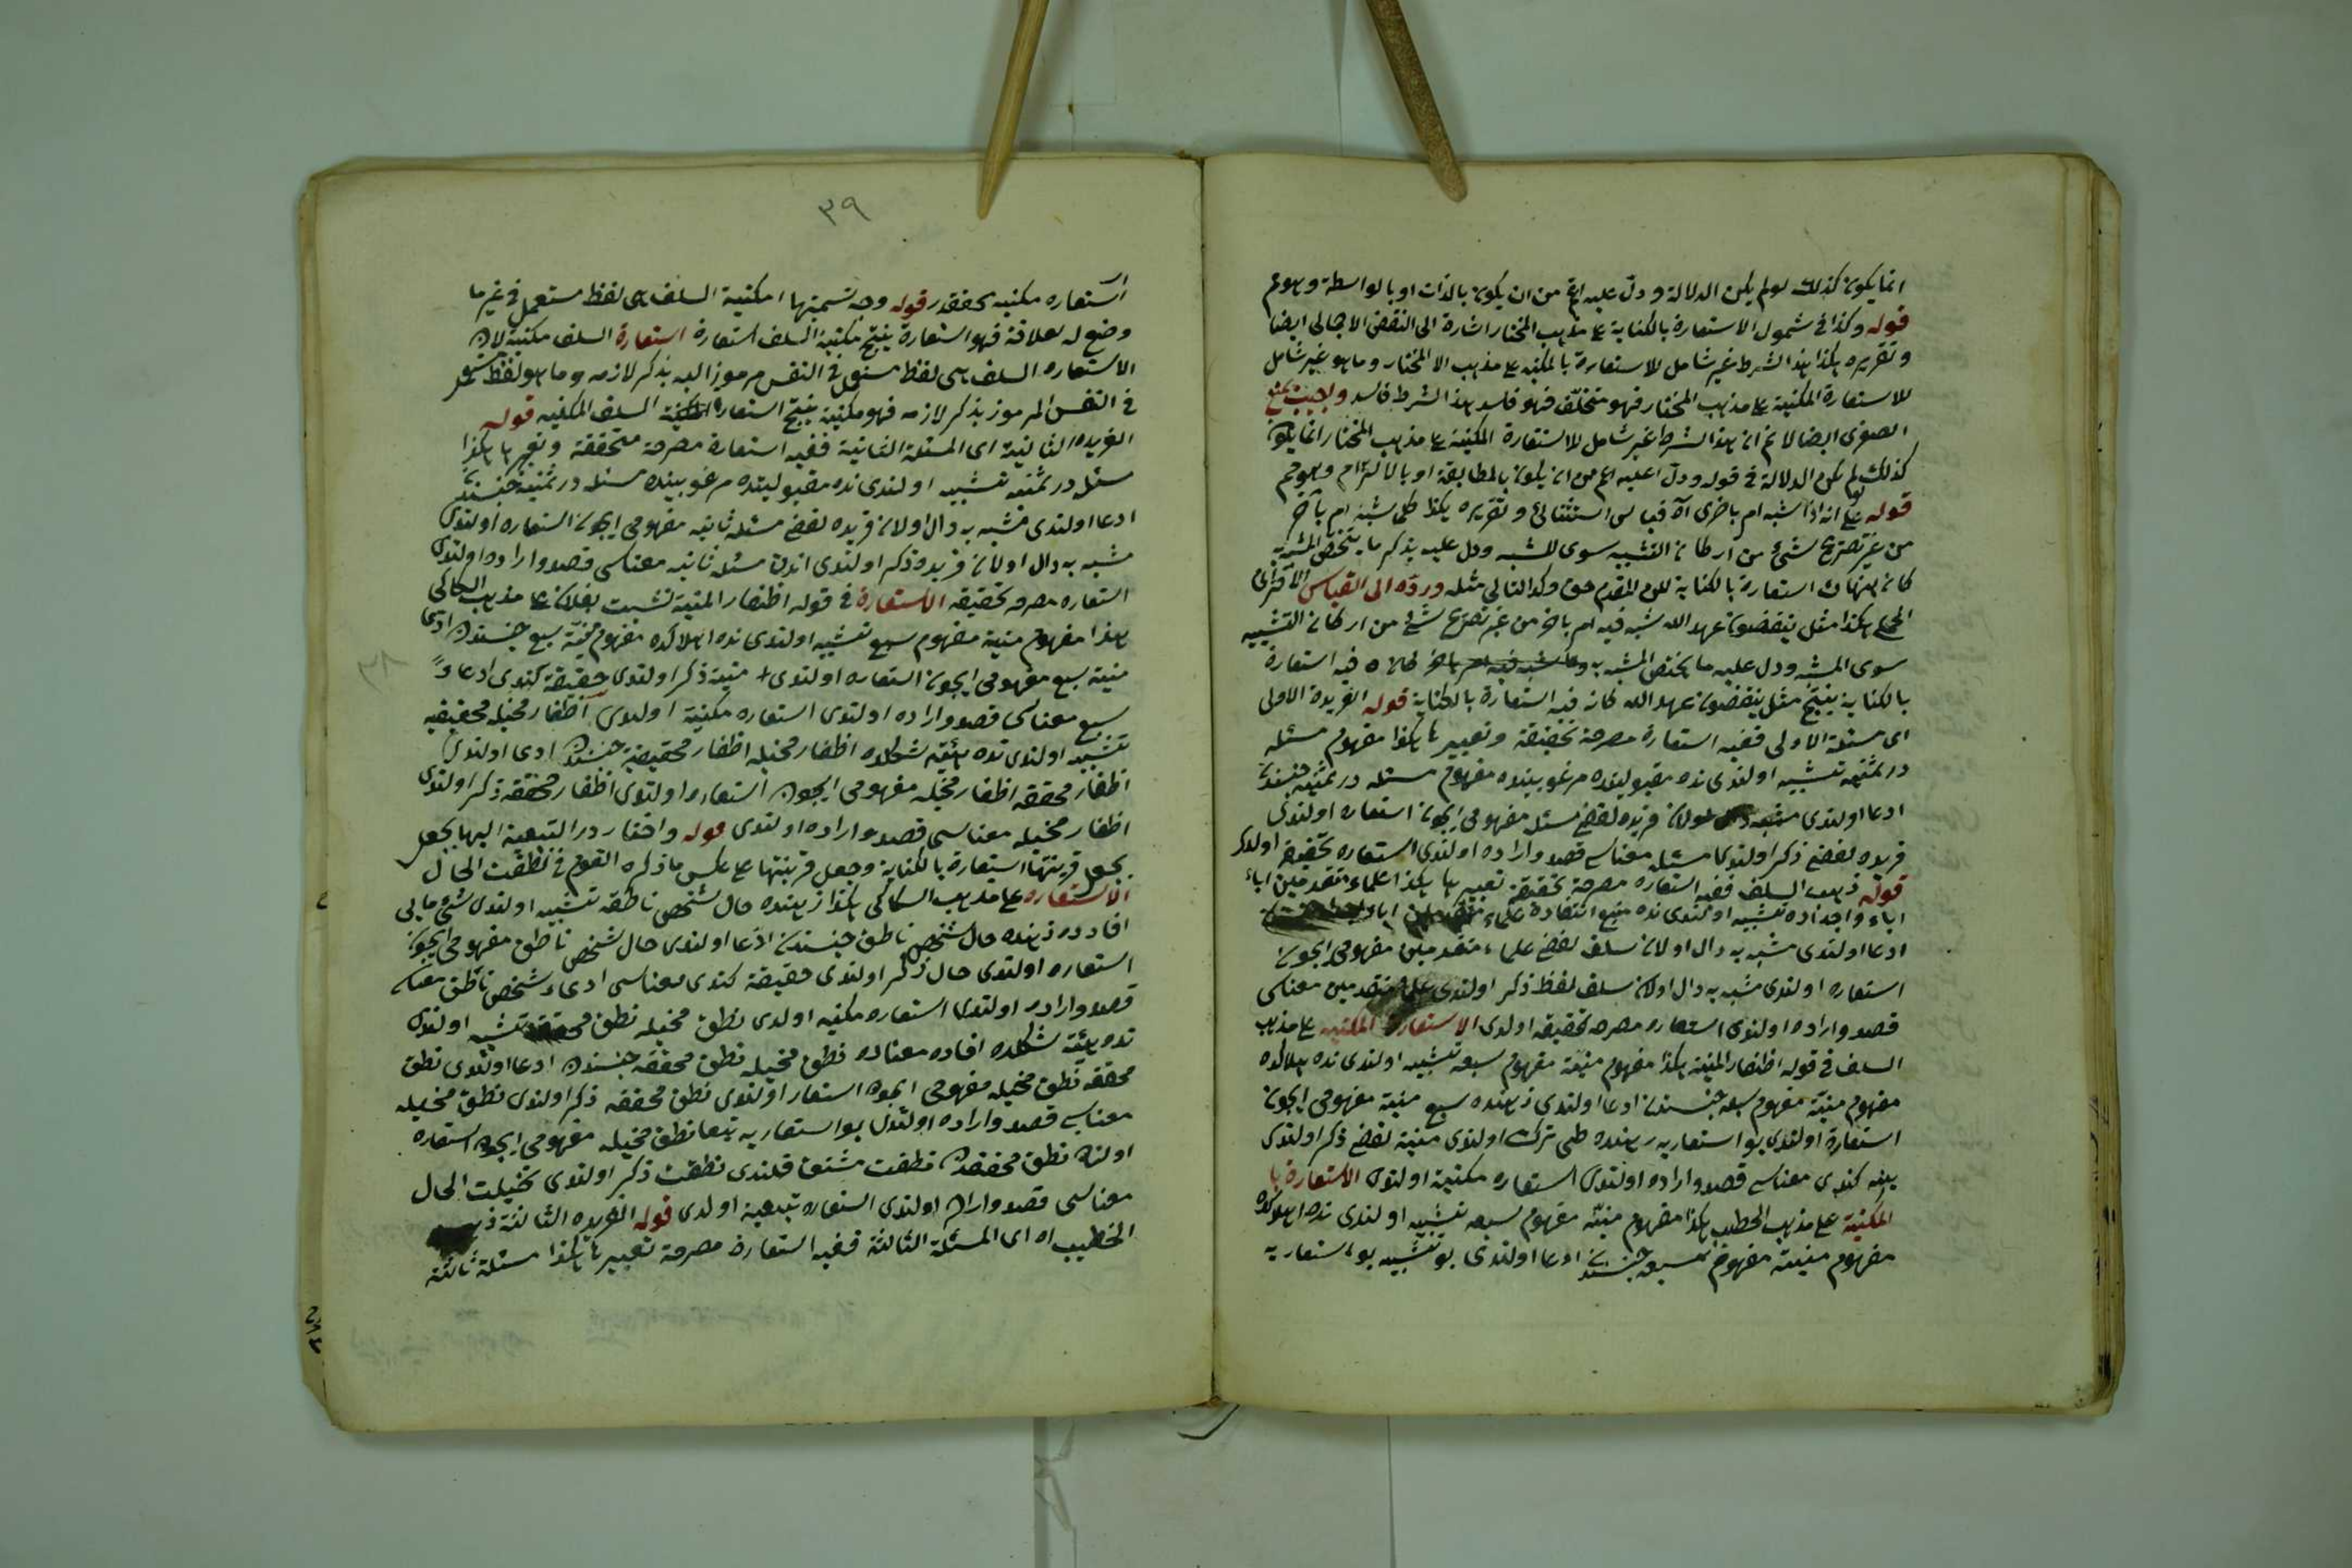 انما يكون كذلك لو لم يكن الدلالة ودل عليه اعم من ان يكون بالذات او بالواسطة وهو مم
قوله وكذا فى شمول الاستعارة بالكناية على مذهب المختار اشارة الى النقض الاجمالى ايضا
وتقريره هكذا هذا الشرط غير شامل للاستعارة بالمكنيه على مذهب الا المختار وما هو غير شامل
للاستعارة المكنية على مذهب المختار فهو متخلف فهو فاسد هذا الشرط فاسد واجيب بمنع
الصغرى ايضا لانم ان هذا الشرط غير شامل للاستعارة المكنية على مذهب المختار انما يكون
كذلك لو لم يكن الدلالة فى قوله ودل عليه اعم من ان يكون بالمطابقة او بالالتزام وهو مم
قوله على انه اذا شبه امر باخرى آه قياس استثنائى وتقريره هكذا كلما شبه امر بآخر
من غير تصريح شئ من اركان التشبيه سوى المشبه ودل عليه بذكر ما يختص المشبه به
كان هناك استعارة بالكناية لكن المقدم حق وكذا التالى مثله ورده الى القياس الاقترانى
الحملى هكذا مثل ينقضون عهد الله شبه فيه امر باخر من غير تصريح شئ من اركان التشبيه
سوى المشبه ودل عليه ما يختص المشبه به وكلما شبه فيه امر باخر كان فيه استعارة
بالكناية ينتج مثل ينقضون عهد الله كان فيه استعارة بالكناية قوله الفريدة الاولى
اى مسئلة الاولى ففيه استعارة مصرحة تحقيقة وتعبيرها هكذا مفهوم مسئله
در ثمنيه تشبيه اولندى نده مقبوليتده مرغوبيتده مفهوم مسئله در ثمنيه جنسندن
ادعا اولندى مشبه به دال اولان فريده لفظى مسئله مفهومى ايچون استعاره اولندى
فريده لفظى ذكر اولندى مسئله معناسى قصد واراده اولندى استعاره تحقيقه اولدى
قوله ذهب السلف ففيه استعاره مصرحة تحقيقة تعبيرها هكذا علماء متقدمين اباء
اباء واجداده تشبيه اولندى نده منبع استفاده علماء متقدمين اباء
ادعا اولندى مشبه به دال اولان سلف لفظى علماء متقدمين مفهومى ايچون
استعاره اولندى مشبه به دال اولان سلف لفظ ذكر اولندى علماء متقدمين معناسى
قصد واراده اولندى استعاره مصرحه تحقيقه اولدى الاستعارة المكنيه على مذهب
السلف فى قوله اظفار المنية هكذا مفهوم منية مفهوم سبعه تشبيه اولندى نده هلاكده
مفهوم منية مفهوم سبعه جنسندن ادعا اولندى ذهنده سبع منية مفهومى ايچون
استعارة اولندى بو استعاريه ذهنده طى ترك اولندى منية لفظى ذكر اولندى
ينه كندى معناسى قصد واراده اولندى استعاره مكنية اولندى الاستعارة با
المكنية على مذهب الخطيب هكذا مفهوم منية مفهوم سبعه تشبيه اولندى نده اهلاكده
مفهوم منية مفهوم سبعه جنسندن ادعا اولندى بو تشبيه بو استعاريه
٣٩
استعاره مكنيه تحقق در قوله وجه تسميتها مكنية السلف هى لفظ مستعمل فى غير ما
وضع له لعلاقة فهو استعارة ينتج مكنية السلف استعارة استعارة السلف مكنية لان
الاستعاره السلف هى لفظ مستعمل فى النفس مرموز اليه بذكر لازمه وما هو لفظ مستعمل
فى النفس المرموز بذكر لازمه فهو مكنية ينتج استعارة السلف المكنيه قوله
الفريده الثانية اى المسئلة الثانية ففيه استعارة مصرحة متحققة وتعبيرها هكذا
مسئله در ثمنيه تشبيه اولندى نده مقبوليتده مرغوبيتده مسئله در ثمنيه جنسندن
ادعا اولندى مشبه به دال اولان فريده لفظى مسئله ثانيه مفهومى ايچون استعاره اولندى
مشبه به دال اولان فريده ذكر اولندى اندن مسئله ثانيه معناسى قصد واراده اولندى
استعاره مصرحه تحقيقه الاستعارة فى قوله اظفار المنية نشبت بفلان على مذهب السكاكى
هكذا مفهوم منية مفهوم سبع تشبيه اولندى نده اهلاكده مفهوم منية سبع جنسندن ادعا
منية سبع مفهومى ايچون استعاره اولندى منية ذكر اولندى حقيقة كندى ادعاءً
سبع معناسى قصد واراده اولندى استعاره مكنية اولدى اظفار مخيله محقيقيه
تشبيه اولندى نده هيئته شكلده اظفار مخيله اظفار محقيقية جنسندن ادعى اولندى
اظفار محققه اظفار مخيله مفهومى ايچون استعاره اولندى اظفار محققه ذكر اولندى
اظفار مخيله معناسى قصد واراده اولندى قوله واختار در التبعية اليها بجعل
بجعل قرينتها استعارة بالكناية وجعل قرينتها على عكس ما ذكره القوم فى نطقت الحال
الاستعاره على مذهب السكاكى هكذا ذهنده حال شخص ناطقه تشبيه اولندى
افاده ده ذهنده حال شخص ناطق جنسندن ادعا اولندى حال شخص ناطق مفهومى ايچون
استعاره اولندى حال ذكر اولندى حقيقة كندى معناسى ادعاء شخص ناطق معناسى
قصد واراده اولندى استعاره مكنيه اولدى نطق مخيله نطق محققه تشبيه اولندى
نده هيئته شكلده افاده معناده نطق مخيله نطق محققه جنسندن ادعا اولندى نطق
محققه نطق مخيله مفهومى ايچون استعار اولندى نطق محققه ذكر اولندى نطق مخيله
معناسى قصد واراده اولندى بو استعاريه تبعا نطق مخيله مفهومى ايچون استعاره
اولنان نطق محققدن نطقت مشتق قلندى نطقت ذكر اولندى تخيلت الحال
معناسى قصد واراده اولندى استعاره تبعية اولدى قوله الفريده الثالثة ذهب
الخطيب اه اى المسئلة الثالثة ففيه استعارة مصرحة تعبيرها هكذا مسئلة ثالثة